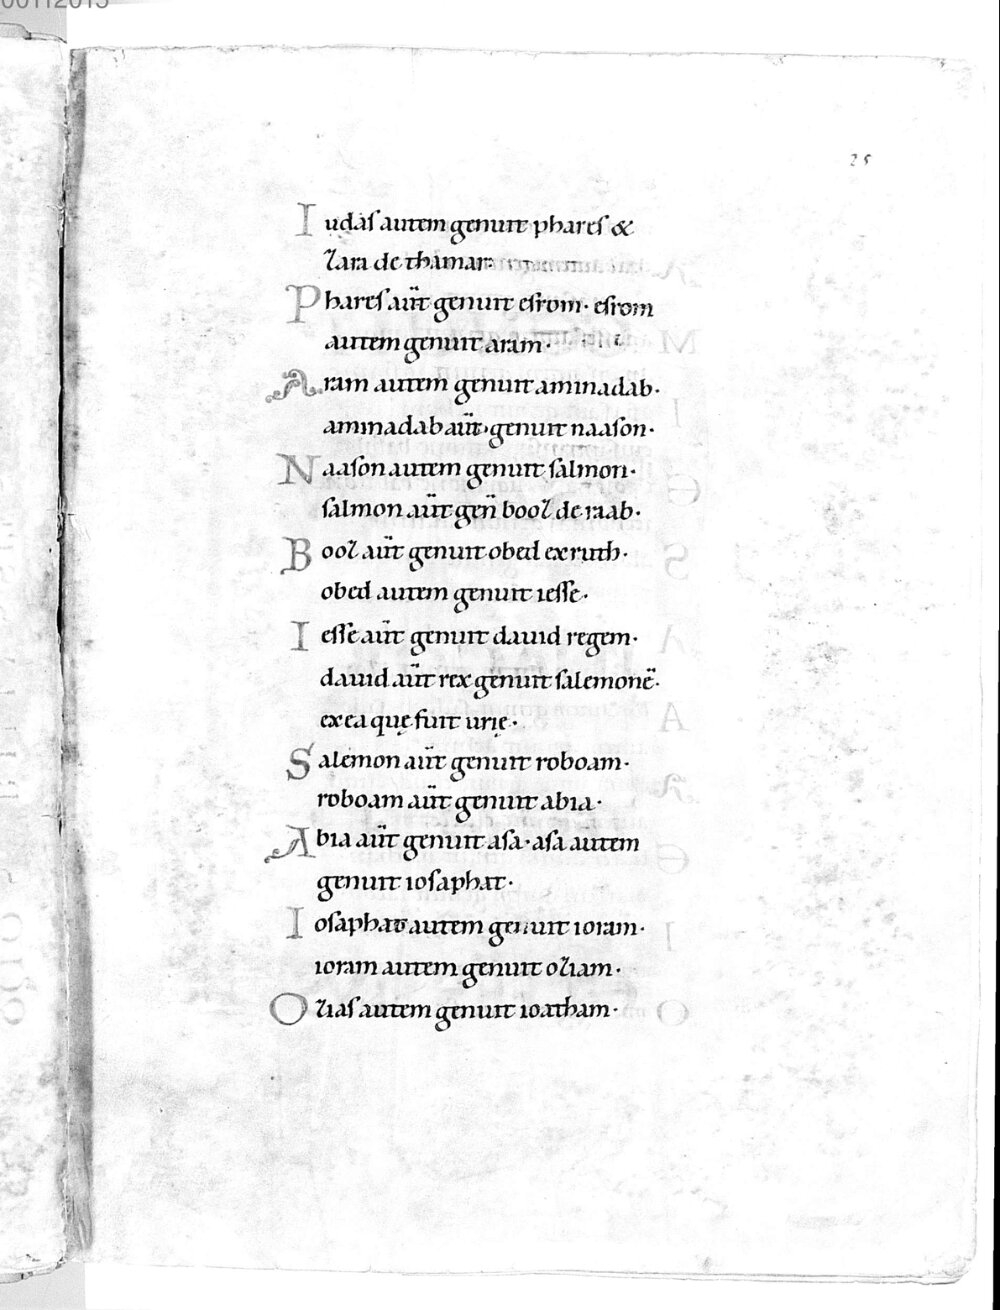 00112015
25
Iudas autem genuit phares &
zara de thamar.
Phares aut̄ genuit esrom· esrom
autem genuit aram·
Aram autem genuit aminadab·
aminadab aut̄· genuit naason·
Naason autem genuit salmon·
salmon aut̄ gen̄ booz de raab·
Booz aut̄ genuit obed ex ruth·
obed autem genuit iesse·
Iesse aut̄ genuit dauid regem·
dauid aut̄ rex genuit salemonē·
ex ea quę fuit urię·
Salemon aut̄ genuit roboam·
roboam aut̄ genuit abia·
Abia aut̄ genuit asa· asa autem
genuit iosaphat·
Iosaphat autem genuit ioram·
ioram autem genuit oziam·
Ozias autem genuit ioatham·